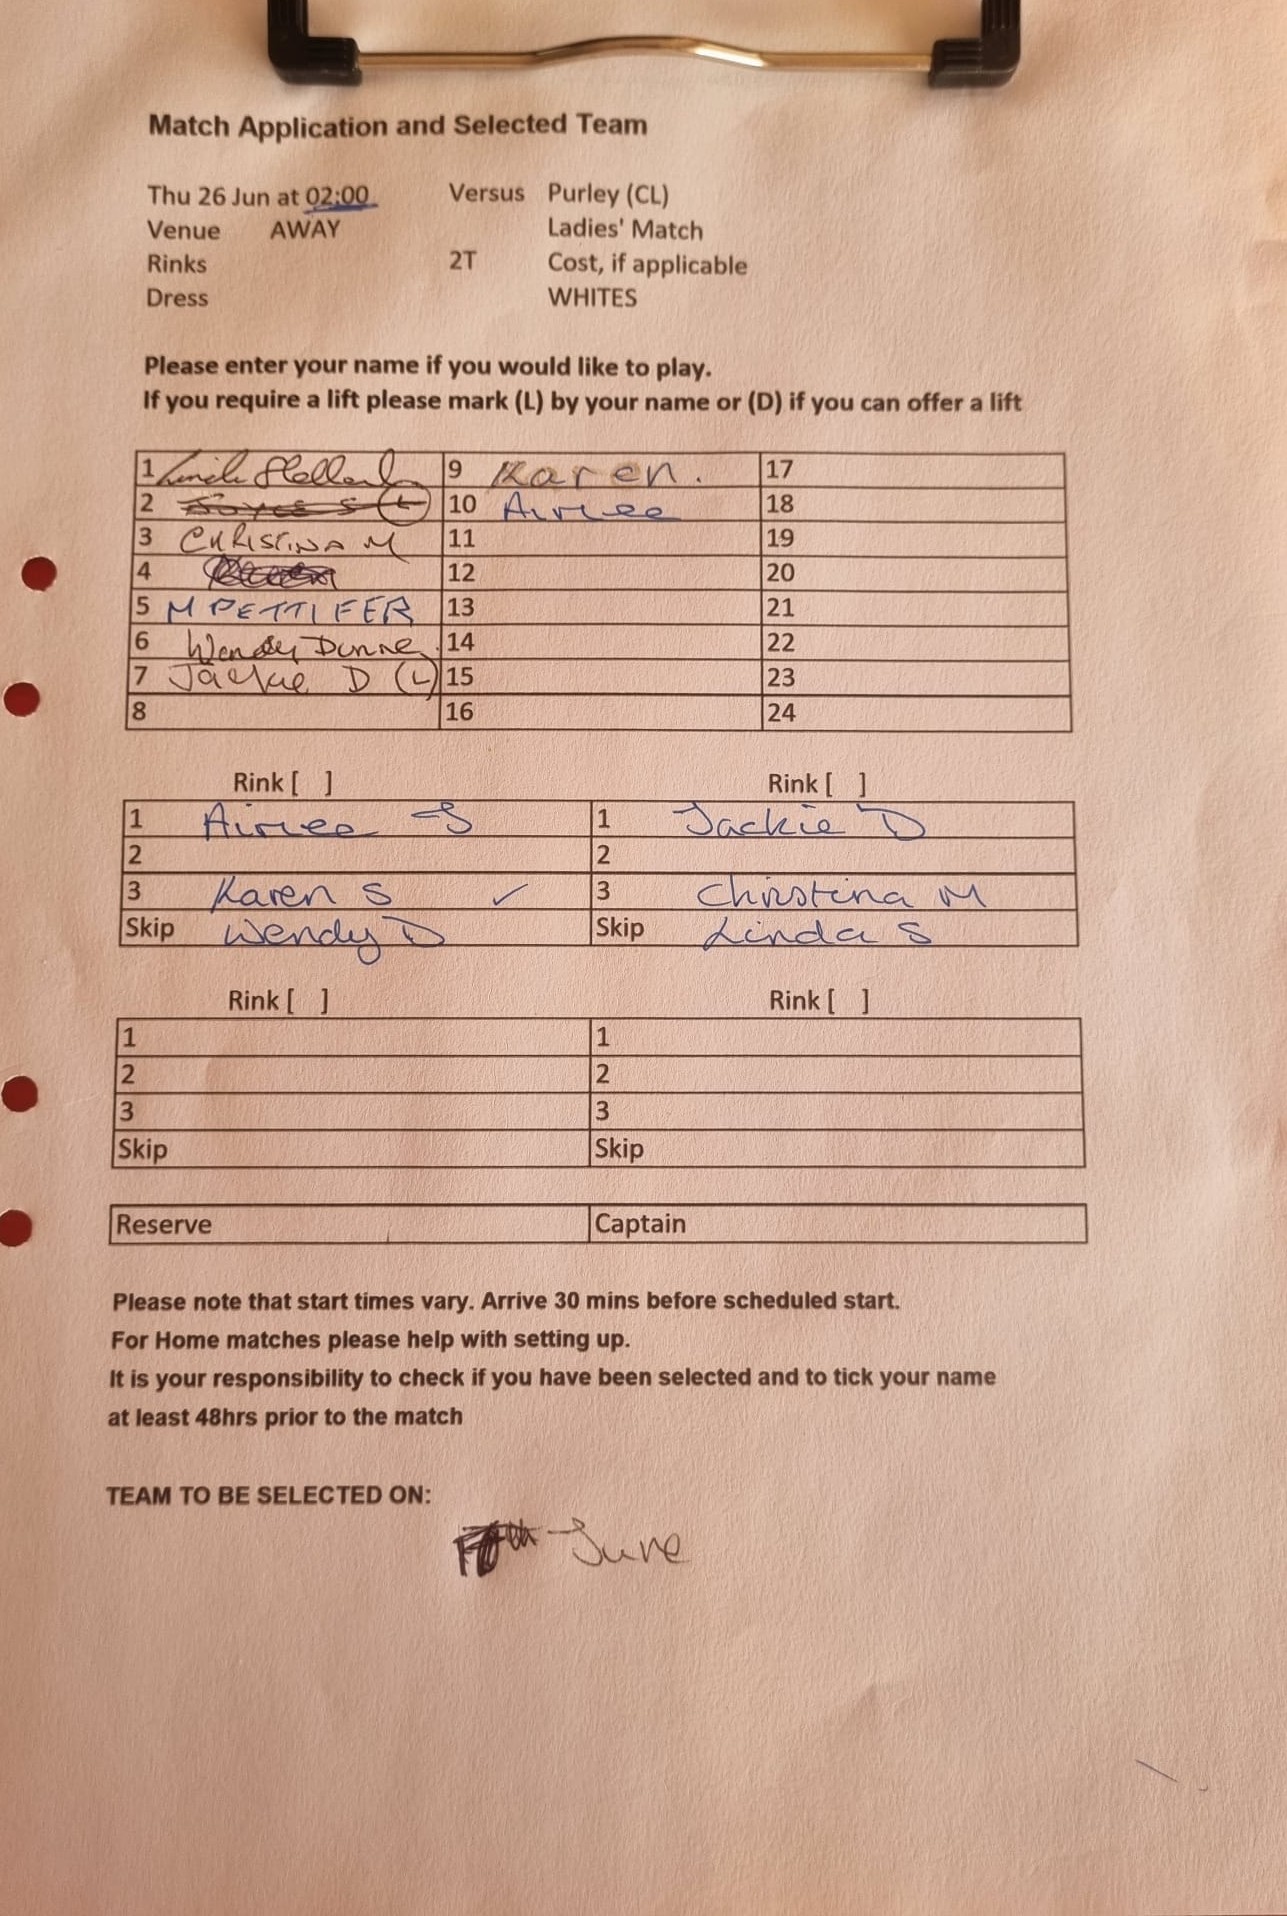 Match Application and Selected Team
Thu 26 Jun at 02:00 Versus Purley (CL)
Venue AWAY Ladies' Match
Rinks 2T Cost, if applicable
Dress WHITES
Please enter your name if you would like to play.
If you require a lift please mark (L) by your name or (D) if you can offer a lift
1 9 Karen. 17
2 Joyce S (L) 10 Airlee 18
3 CHRISTINA M 11 19
4 12 20
5 M PETTIFER 13 21
6 Wendy Dunne 14 22
7 Jackie D (L) 15 23
8 16 24
Rink [ ] Rink [ ]
1 Airlee S 1 Jackie D
2 2
3 Karen S ✓ 3 Christina M
Skip Wendy D Skip Linda S
Rink [ ] Rink [ ]
1 1
2 2
3 3
Skip Skip
Reserve Captain
Please note that start times vary. Arrive 30 mins before scheduled start.
For Home matches please help with setting up.
It is your responsibility to check if you have been selected and to tick your name
at least 48hrs prior to the match
TEAM TO BE SELECTED ON:
June